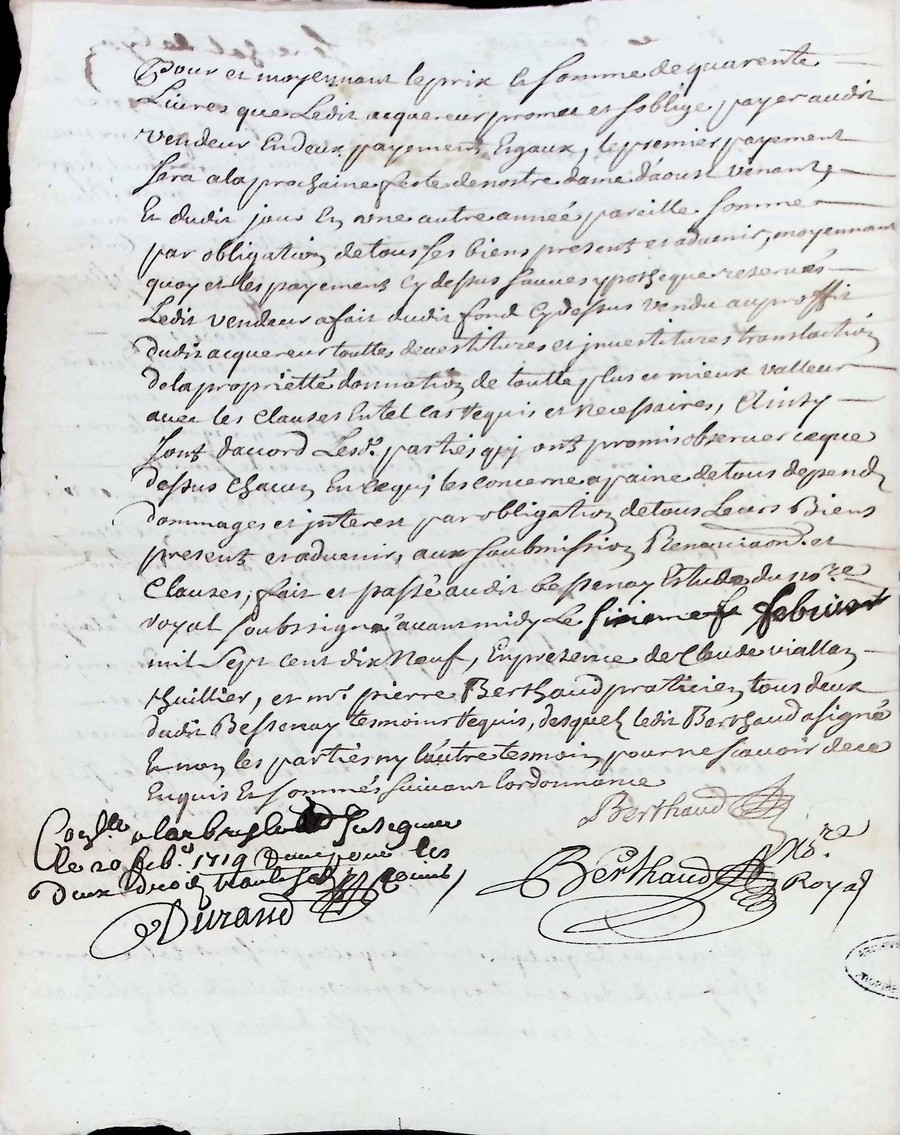 Pour et moyennant le prix et somme de quarente
Livres que Ledit acquereur promet et soblige payer audit
vendeur En deux payements Egaux, le premier payement
sera a la prochaine feste de nostre dame d'aoust venant,
Et dudit jour En une autre année pareille somme
par obligation de tous ses biens presents et advenir, moyennant
quoy et les payements Cy dessus sauues ypotheque reservés
Ledit vendeur a fait dudit fond Cy dessus vendu au proffit
dudit acquereur touttes devestitures et jnvestitures translaction
de la proprietté donnation de toutte plus et mieux valleur
avec les Clauses En tel cas requis et necessaires, Ainsy
sont d'acord Lesd. parties quj ont promis observer ce que
dessus chacun En ce quj les concerne a paine de tous depends
dommages et jnterest par obligation de tous Leurs Biens
presents et advenir, aux soubmission Renonciaon. et
Clauses, fait et passé audit bessenay Estude du no.re
royal soubsigné avant midy Le febvrier
mil sept cent dix Neuf, En presence de Claude viallon
thuillier, et mr. pierre Berthaud praticien tous deux
dudit Bessenay tesmoins requis, desquels ledit Berthaud a signé
Et non les parties ny l'autre tesmoin pour ne scavoir de ce
Enquis Et sommés suivant l'ordonnance
Berthaud
Con.lle a larbresle
le 20 feb. 1719 pour les
deux droits
Durand
Berthaud No.re
Royal